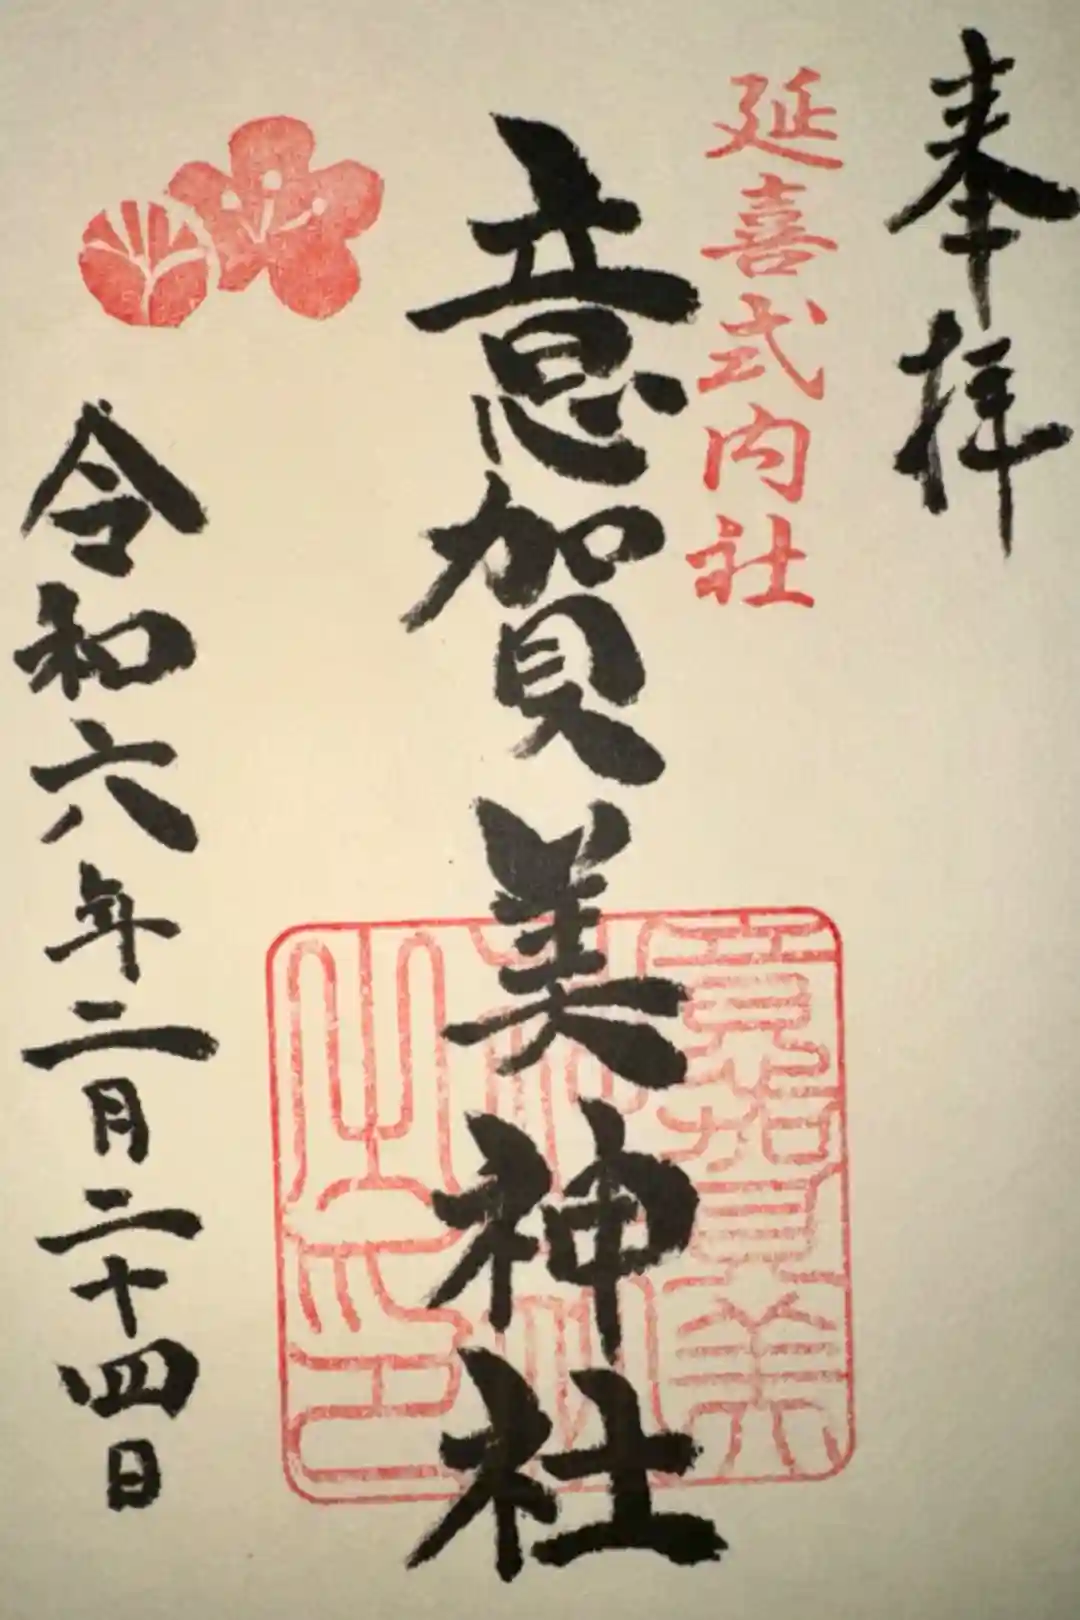 奉拝
延喜式内社
意賀美神社
令和六年二月二十四日
意賀美神社之印